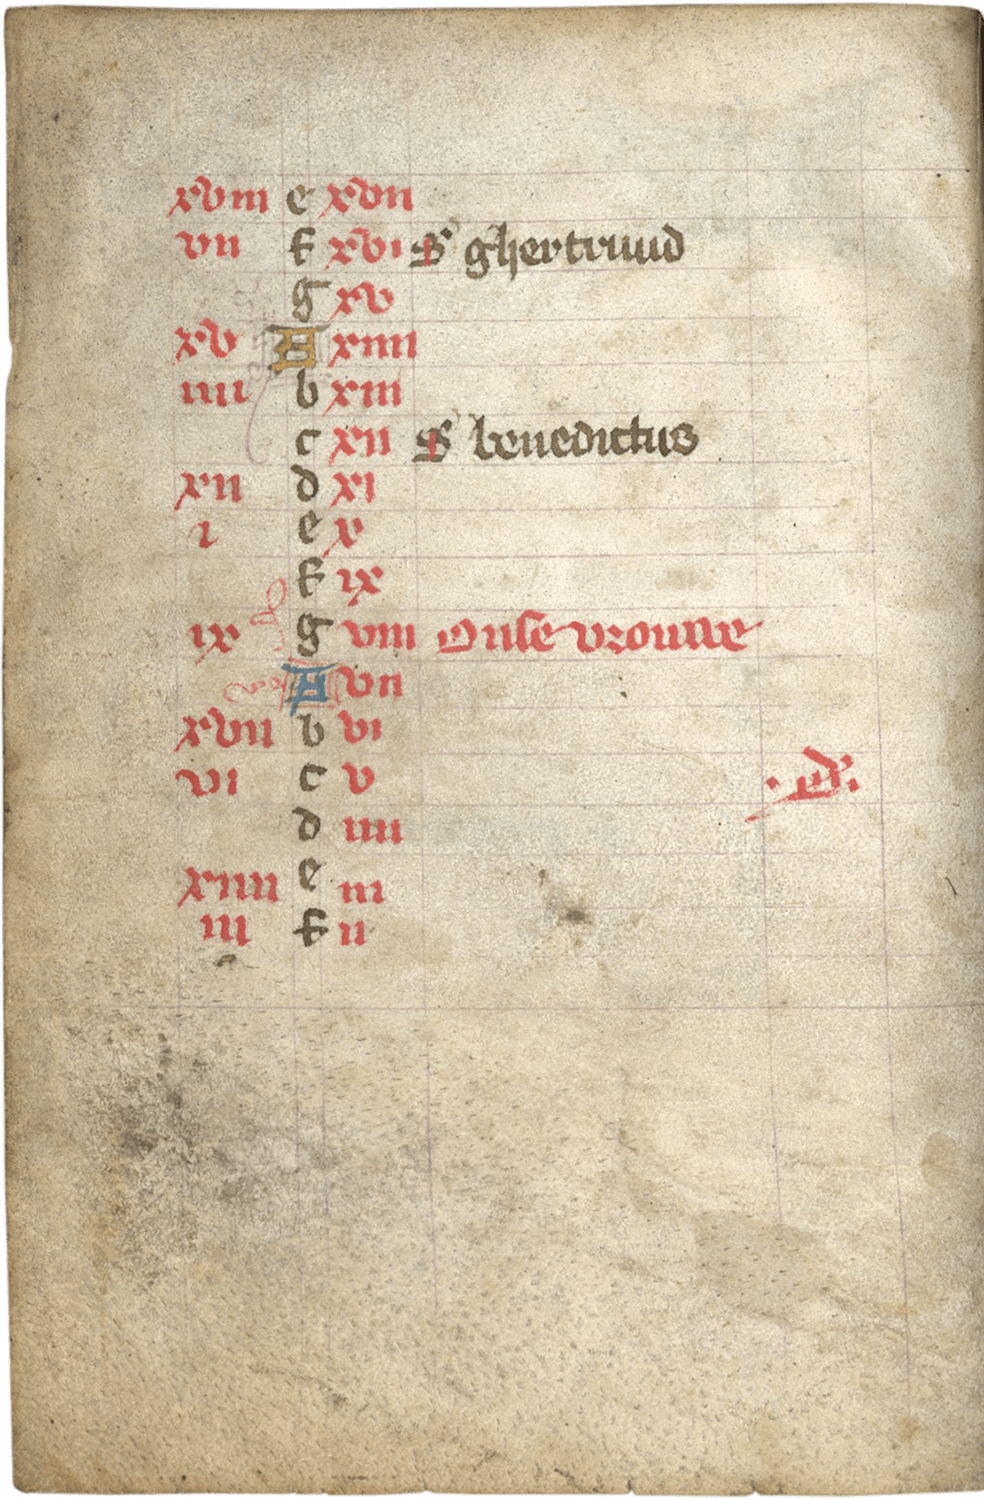 xviii e xvii
vii f xvi S ghertruud
g xv
xv A xiiii
iiii b xiii
c xii S benedictus
xii d xi
i e x
f ix
ix g viii Onse vrouwe
A vii
xvii b vi
vi c v
d iiii
xiiii e iii
iii f ii